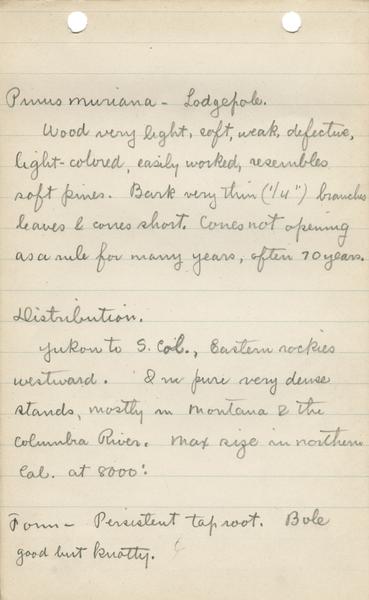 Pinus muriana - Lodgepole.
Wood very light, soft, weak, defective,
light-colored, easily worked, resembles
soft pines. Bark very thin (1/4") branches
leaves & cones short. Cones not opening
as a rule for many years, often 70 years.
Distribution.
Yukon to S. Cal., Eastern rockies
westward. & in pure very dense
stands, mostly in Montana & the
Columbia River. Max size in northern
Cal. at 8000'.
Form - Persistent taproot. Bole
good but knotty.